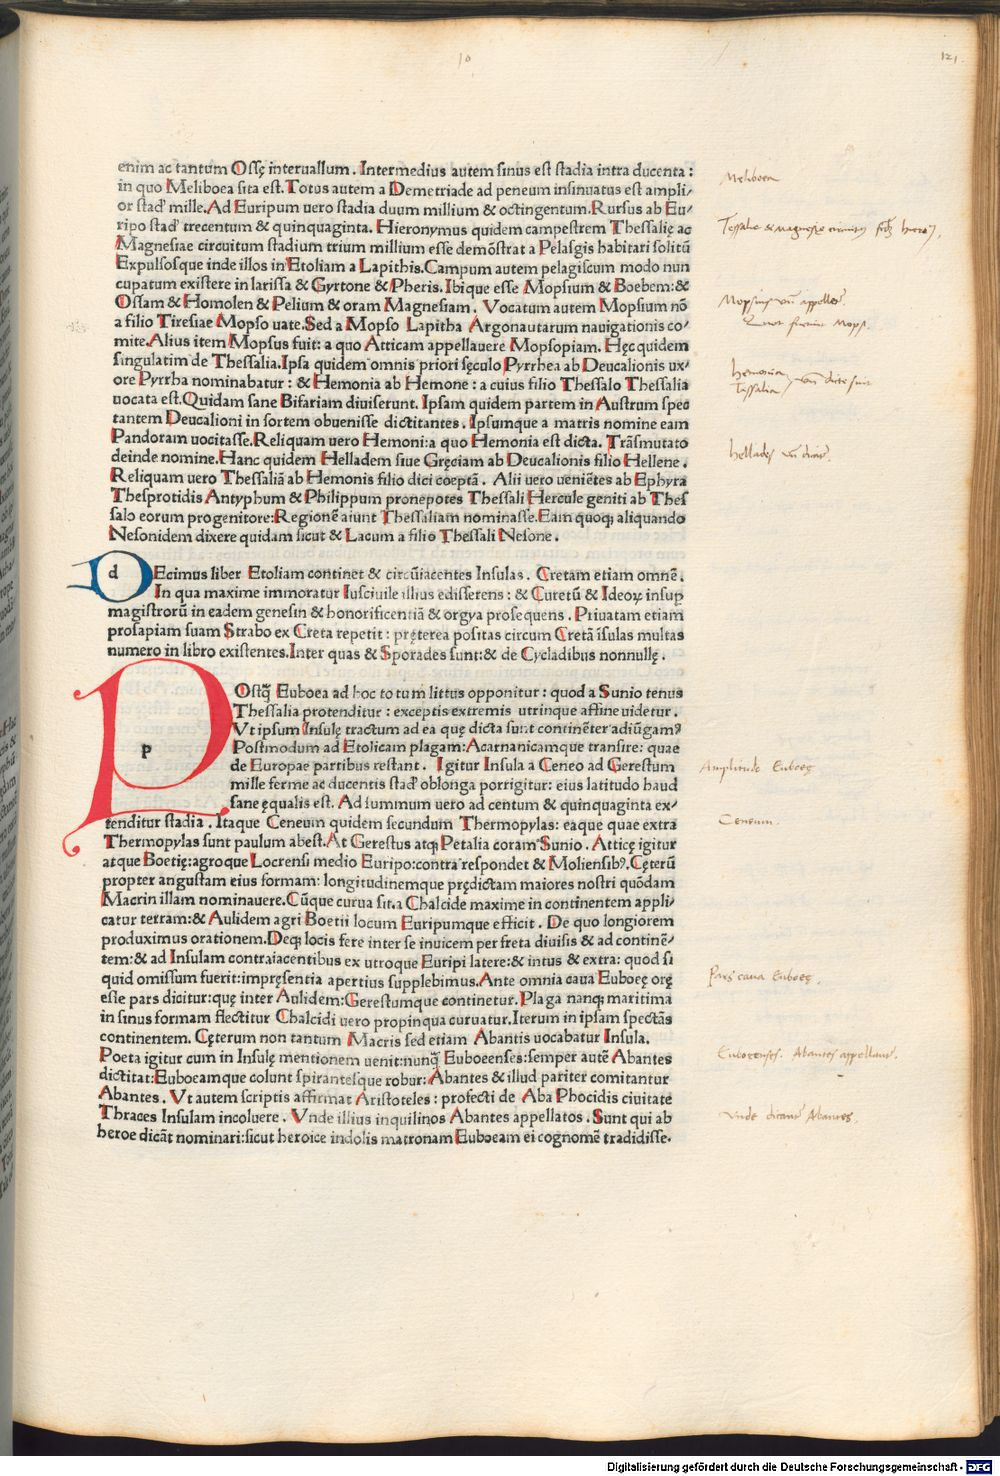 10
121.
enim ac tantum Ossę interuallum. Intermedius autem sinus est stadia intra ducenta:
in quo Meliboea sita est. Totus autem a Demetriade ad peneum insinuatus est ampli/
or stad' mille. Ad Euripum uero stadia duum millium & octingentum. Rursus ab Eu/
ripo stad' trecentum & quinquaginta. Hieronymus quidem campestrem Thessalię ac
Magnesiae circuitum stadium trium millium esse demōstrat a Pelasgis habitari solitū
Expulsosque inde illos in Etoliam a Lapithis. Campum autem pelagiscum modo nun
cupatum existere in larissa & Gyrtone & Pheris. Ibique esse Mopsium & Boebem: &
Ossam & Homolen & Pelium & oram Magnesiam. Vocatum autem Mopsium nō
a filio Tiresiae Mopso uate. Sed a Mopso Lapitha Argonautarum nauigationis co/
mite. Alius item Mopsus fuit: a quo Atticam appellauere Mopsopiam. Hęc quidem
singulatim de Thessalia. Ipsa quidem omnis priori sęculo Pyrrhea ab Deucalionis ux/
ore Pyrrha nominabatur: & Hemonia ab Hemone: a cuius filio Thessalo Thessalia
uocata est. Quidam sane Bifariam diuiserunt. Ipsam quidem partem in Austrum spec
tantem Deucalioni in sortem obuenisse dictitantes. Ipsumque a matris nomine eam
Pandoram uocitasse. Reliquam uero Hemoni: a quo Hemonia est dicta. Trāsmutato
deinde nomine. Hanc quidem Helladem siue Gręciam ab Deucalionis filio Hellene.
Reliquam uero Thessaliā ab Hemonis filio dici coeptā. Alii uero ueniētes ab Ephyra
Thesprotidis Antyphum & Philippum pronepotes Thessali Hercule geniti ab Thes
salo eorum progenitore: Regionē aiunt Thessaliam nominasse. Eam quoqꝫ aliquando
Nesonidem dixere quidam sicut & Lacum a filio Thessali Nesone.
d
DEcimus liber Etoliam continet & circūiacentes Insulas. Cretam etiam omnē.
In qua maxime immoratur Iusciuile illius edisserens: & Curetū & Ideoꝝ insuꝑ
magistrorū in eadem genesin & honorificentiā & orgya prosequens. Priuatam etiam
prosapiam suam Strabo ex Creta repetit: pręterea positas circum Cretā īsulas multas
numero in libro existentes. Inter quas & Sporades sunt: & de Cycladibus nonnullę.
p
POstq̄ Euboea ad hoc totum littus opponitur: quod a Sunio tenus
Thessalia protenditur: exceptis extremis utrinque affine uidetur.
Vt ipsum Insulę tractum ad ea quę dicta sunt continēter adiūgamꝰ
Postmodum ad Etolicam plagam: Acarnanicamque transire: quae
de Europae partibus restant. Igitur Insula a Ceneo ad Gerestum
mille ferme ac ducentis stad' oblonga porrigitur: eius latitudo haud
sane ęqualis est. Ad summum uero ad centum & quinquaginta ex/
tenditur stadia. Itaque Ceneum quidem secundum Thermopylas: eaque quae extra
Thermopylas sunt paulum abest. At Gerestus atqꝫ Petalia coram Sunio. Atticę igitur
atque Boetię: agroque Locrensi medio Euripo: contra respondet & Moliensibꝰ. Cęterū
propter angustam eius formam: longitudinemque prędictam maiores nostri quōdam
Macrin illam nominauere. Cūque curua sit. a Chalcide maxime in continentem appli/
catur terram: & Aulidem agri Boetii locum Euripumque efficit. De quo longiorem
produximus orationem. Deqꝫ locis fere inter se inuicem per freta diuisis & ad continē/
tem: & ad Insulam contraiacentibus ex utroque Euripi latere: & intus & extra: quod si
quid omissum fuerit: impręsentia apertius supplebimus. Ante omnia caua Euboeę orę
esse pars dicitur: quę inter Aulidem: Gerestumque continetur. Plaga nanqꝫ maritima
in sinus formam flectitur Chalcidi uero propinqua curuatur. Iterum in ipsam spectās
continentem. Cęterum non tantum Macris sed etiam Abantis uocabatur Insula.
Poeta igitur cum in Insulę mentionem uenit: nunq̄ Euboeenses: semper autē Abantes
dictitat: Euboeamque colunt spirantesque robur: Abantes & illud pariter comitantur
Abantes. Vt autem scriptis affirmat Aristoteles: profecti de Aba Phocidis ciuitate
Thraces Insulam incoluere. Vnde illius inquilinos Abantes appellatos. Sunt qui ab
heroe dicāt nominari: sicut heroice indolis matronam Euboeam ei cognomē tradidisse.
Meliboea
Tessalie & Magnesie
Mopsius
Hemonia
Tessalia
Amplitudo Euboeę
Ceneum.
Pars caua Euboeę.
Euboeenses. Abantes
Vnde Abantes.
Digitalisierung gefördert durch die Deutsche Forschungsgemeinschaft - DFG